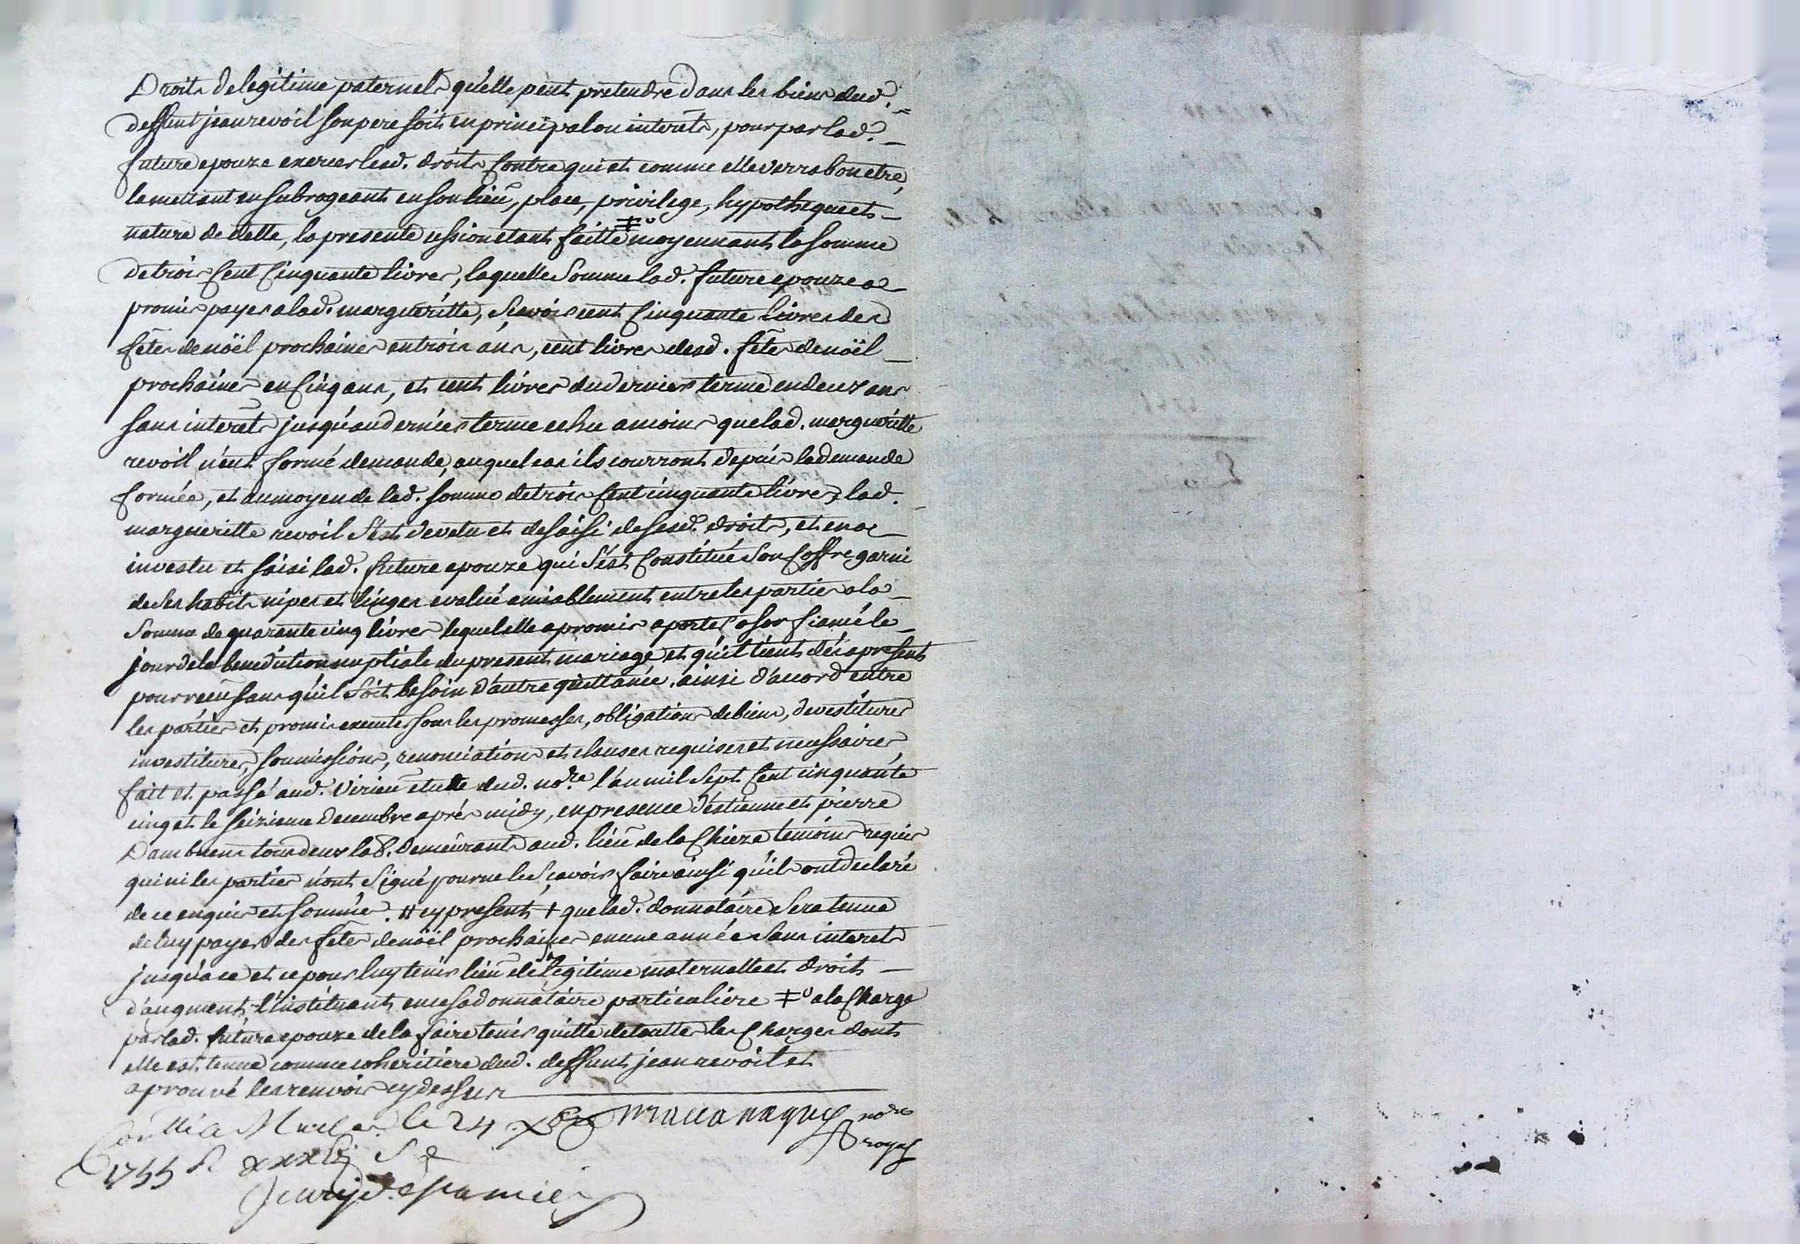 Droits de legitime paternels qu'elle peut pretendre dans les biens dud.
deffunt jean revoil son pere soit en principal ou interets, pour par lad.
future epouze exercer lesd. droits contre qui et comme elle verra bon etre,
la mettant en subrogeant en son lieu, place, privilege, hypotheque et
nature de dette, la presente cession etant faitte ‡° moyennant la somme
de trois cent cinquante livres, laquelle somme lad. future epouze a
promis payer a lad. margueritte, scavoir cent cinquante livres des
fêtes de noël prochaines en trois ans, cent livres desd. fêtes de noël
prochaines en cinq ans, et cent livres du dernier terme en deux ans
sans interets jusqu'au dernier terme echu a moins que lad. margueritte
revoil n'eut formé demande, auquel cas ils courront depuis la demande
formée, et au moyen de lad. somme de trois cent cinquante livres lad.
margueritte revoil s'est devetu et desaisi de sesd. droits, et en a
investu et saisi lad. future epouze qui s'est constitué son coffre garni
de ses habits nipes et linges evalué amiablement entre les parties a la
somme de quarante cinq livres lequel elle a promis aporter a son fiancé le
jour de la benediction nuptiale du present mariage et qu'il tient dés apresent
pour receu sans qu'il soit besoin d'autre quittance. ainsi d'accord entre
les parties et promis executer sous les promesses, obligations de biens, devestitures
investitures, soumissions, renonciations et clauses requises et necessaires
fait et passé aud. Virieu etude dud. no.re l'an mil sept cent cinquante
cinq et le seizieme decembre aprés midy, en presence d'estienne et pierre
tous deux lab. demeurants aud. lieu de la Chieze temoins requis
qui ni les parties n'ont signé pour ne le scavoir faire ainsi qu'ils ont declaré
de ce enquis et sommés. # cy present + que lad. donnataire sera tenue
de luy payer des fêtes de noël prochaines en une année sans interets
jusqu'a ce et ce pour luy tenir lieu de legitime maternelle et droit
d'augment l'instituant en ce sa donnataire particuliere ‡° a la charge
par lad. future epouze de la faire tenir quitte de toutes les charges dont
elle est tenue comme coheritiere dud. deffunt jean revoil et
aprouvé les renvois cy dessus
le 24 x.bre no.re
1755 royal